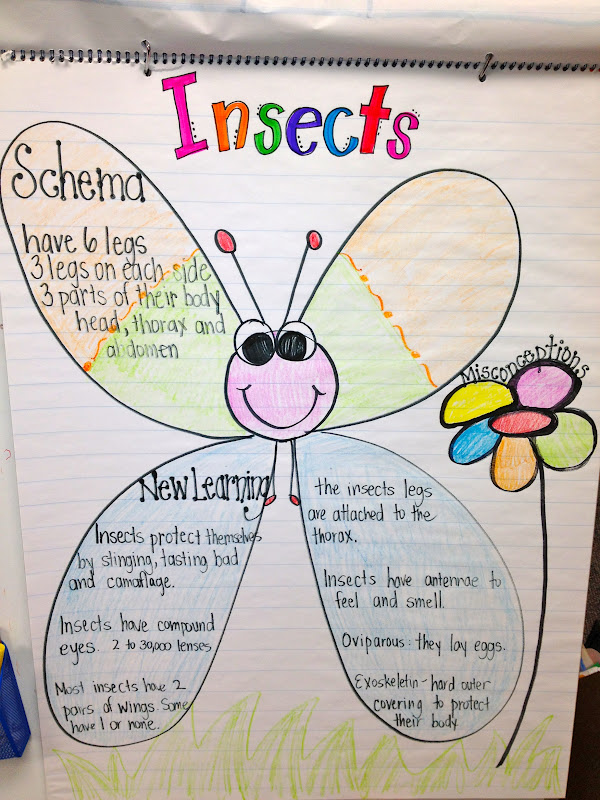 Insects
Schema
have 6 legs
3 legs on each side
3 parts of their body
head, thorax and
abdomen
Misconceptions
New Learning
Insects protect themselves
by stinging, tasting bad
and camoflage.
Insects have compound
eyes. 2 to 30,000 lenses
Most insects have 2
pairs of wings. Some
have 1 or none.
the insects legs
are attached to the
thorax.
Insects have antennae to
feel and smell.
Oviparous: they lay eggs.
Exoskeletin - hard outer
covering to protect
their body